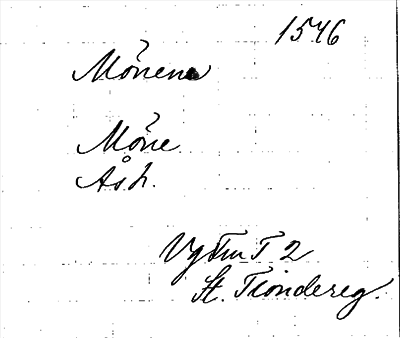 1546
Mönene
Möne
Ås h.
Vg Fm T 2
St. Tiondereg.